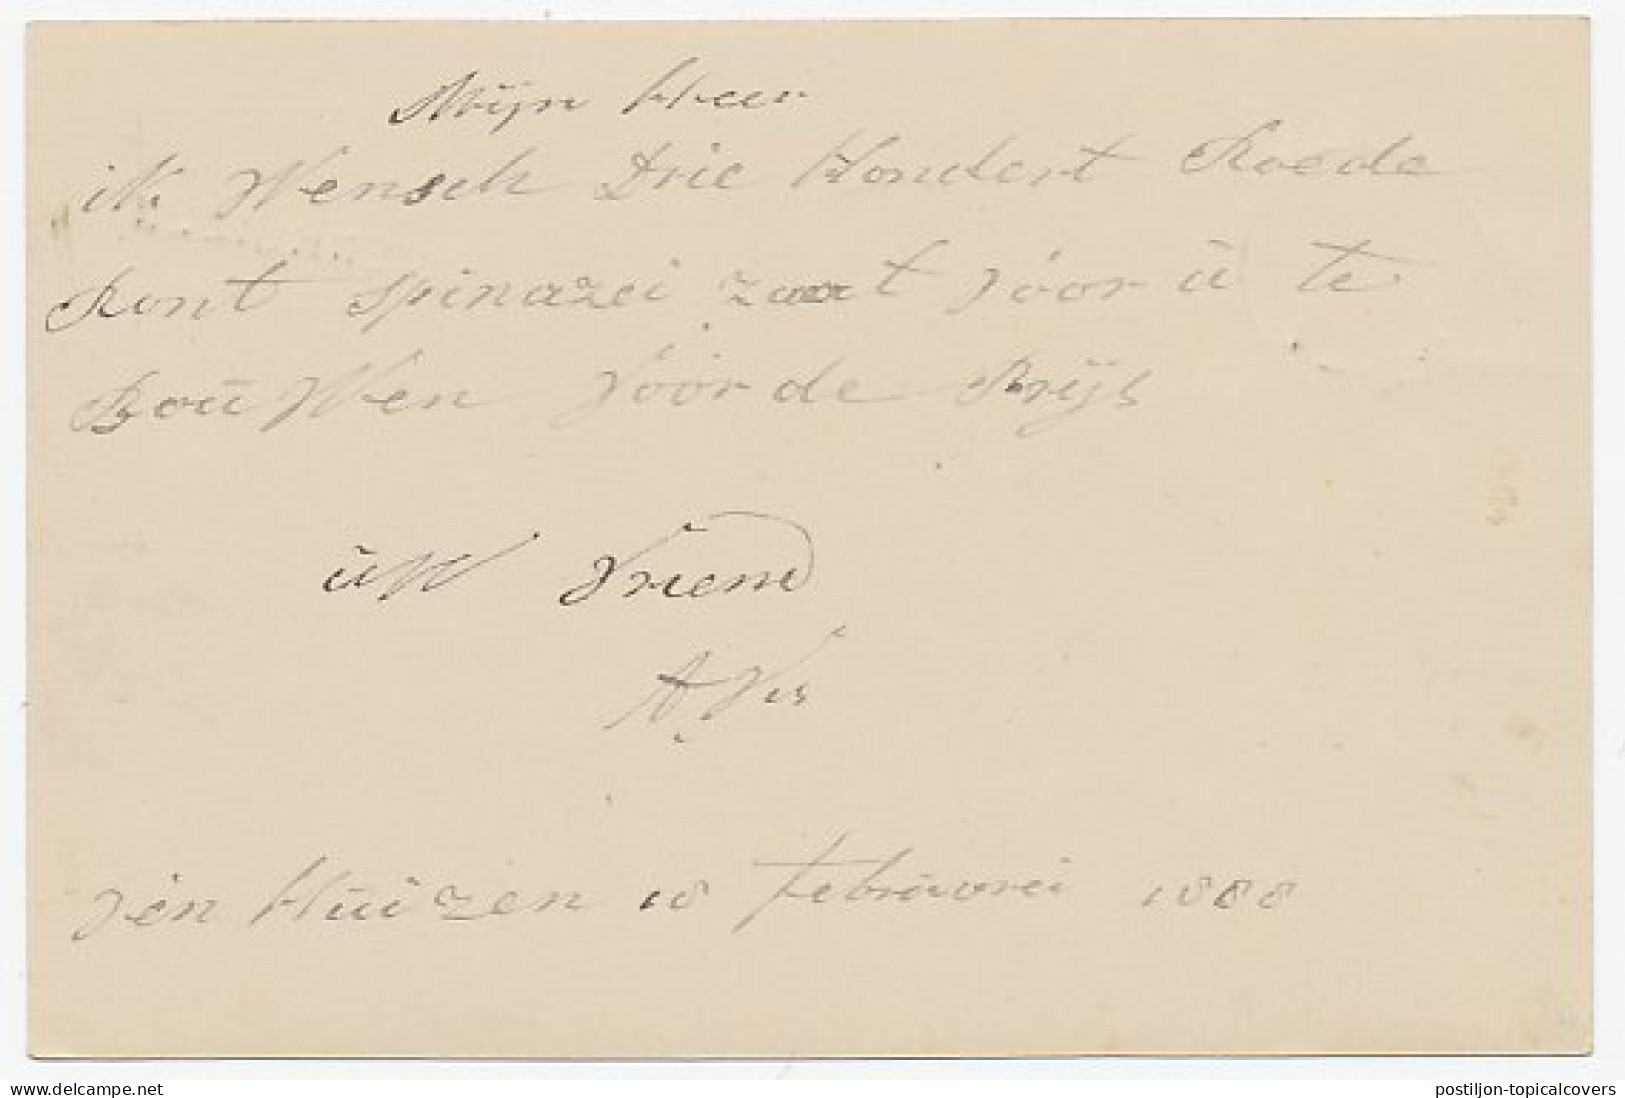 Mijn Heer
ik Wensch Drie Hondert Roede
Ront spinazei zaat voor ù te
Boùwen voor de Prijs
ùW Vriend
A Vis
ven Hùizen 18 februarei 1888
delcampe.net
postiljon-topicalcovers